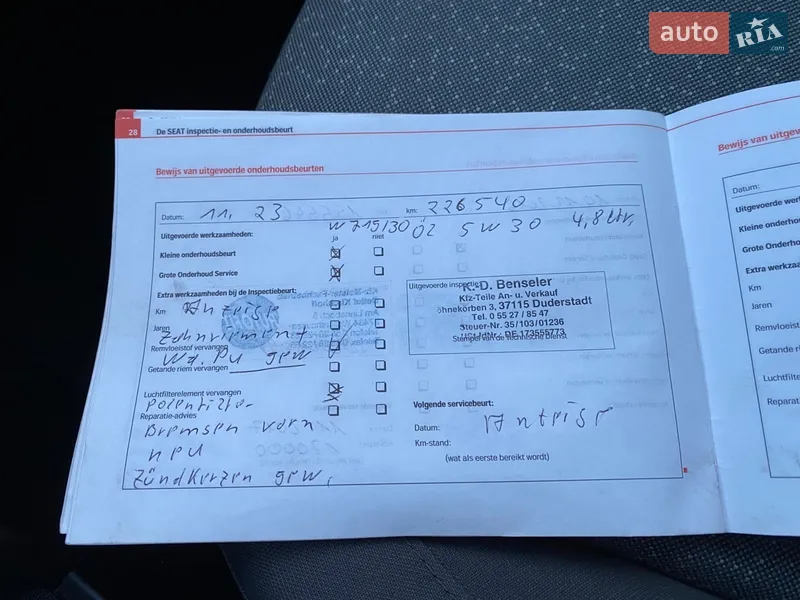 auto RIA .com
28 De SEAT inspectie- en onderhoudsbeurt
Bewijs van uitgevoerde onderhoudsbeurten
Datum: 11. 23 km: 226540
Uitgevoerde werkzaamheden: ja niet
W 715/30 Öl 5W30 4,8 Ltr.
Kleine onderhoudsbeurt
Grote Onderhoud Service
Extra werkzaamheden bij de Inspectiebeurt:
Km
Jaren
Zahnriemen
Remvloeistof vervangen
Wa. Pu gew
Getande riem vervangen
Luchtfilterelement vervangen
Polenfilter
Reparatie-advies
Bremsen vorn
neu
Zündkerzen gew.
Uitgevoerde inspectie
K.-D. Benseler
Kfz-Teile An- u. Verkauf
37115 Duderstadt
Tel. 0 55 27 / 85 47
Steuer-Nr. 35/103/01236
DE 173555773
Stempel van de Technische dienst
Volgende servicebeurt:
Datum:
Km-stand:
(wat als eerste bereikt wordt)
Bewijs van uitgevoer
Datum:
Uitgevoerde werk
Kleine onderho
Grote Onderho
Extra werkzaam
Km
Jaren
Remvloeisto
Getande rie
Luchtfiltere
Reparatie